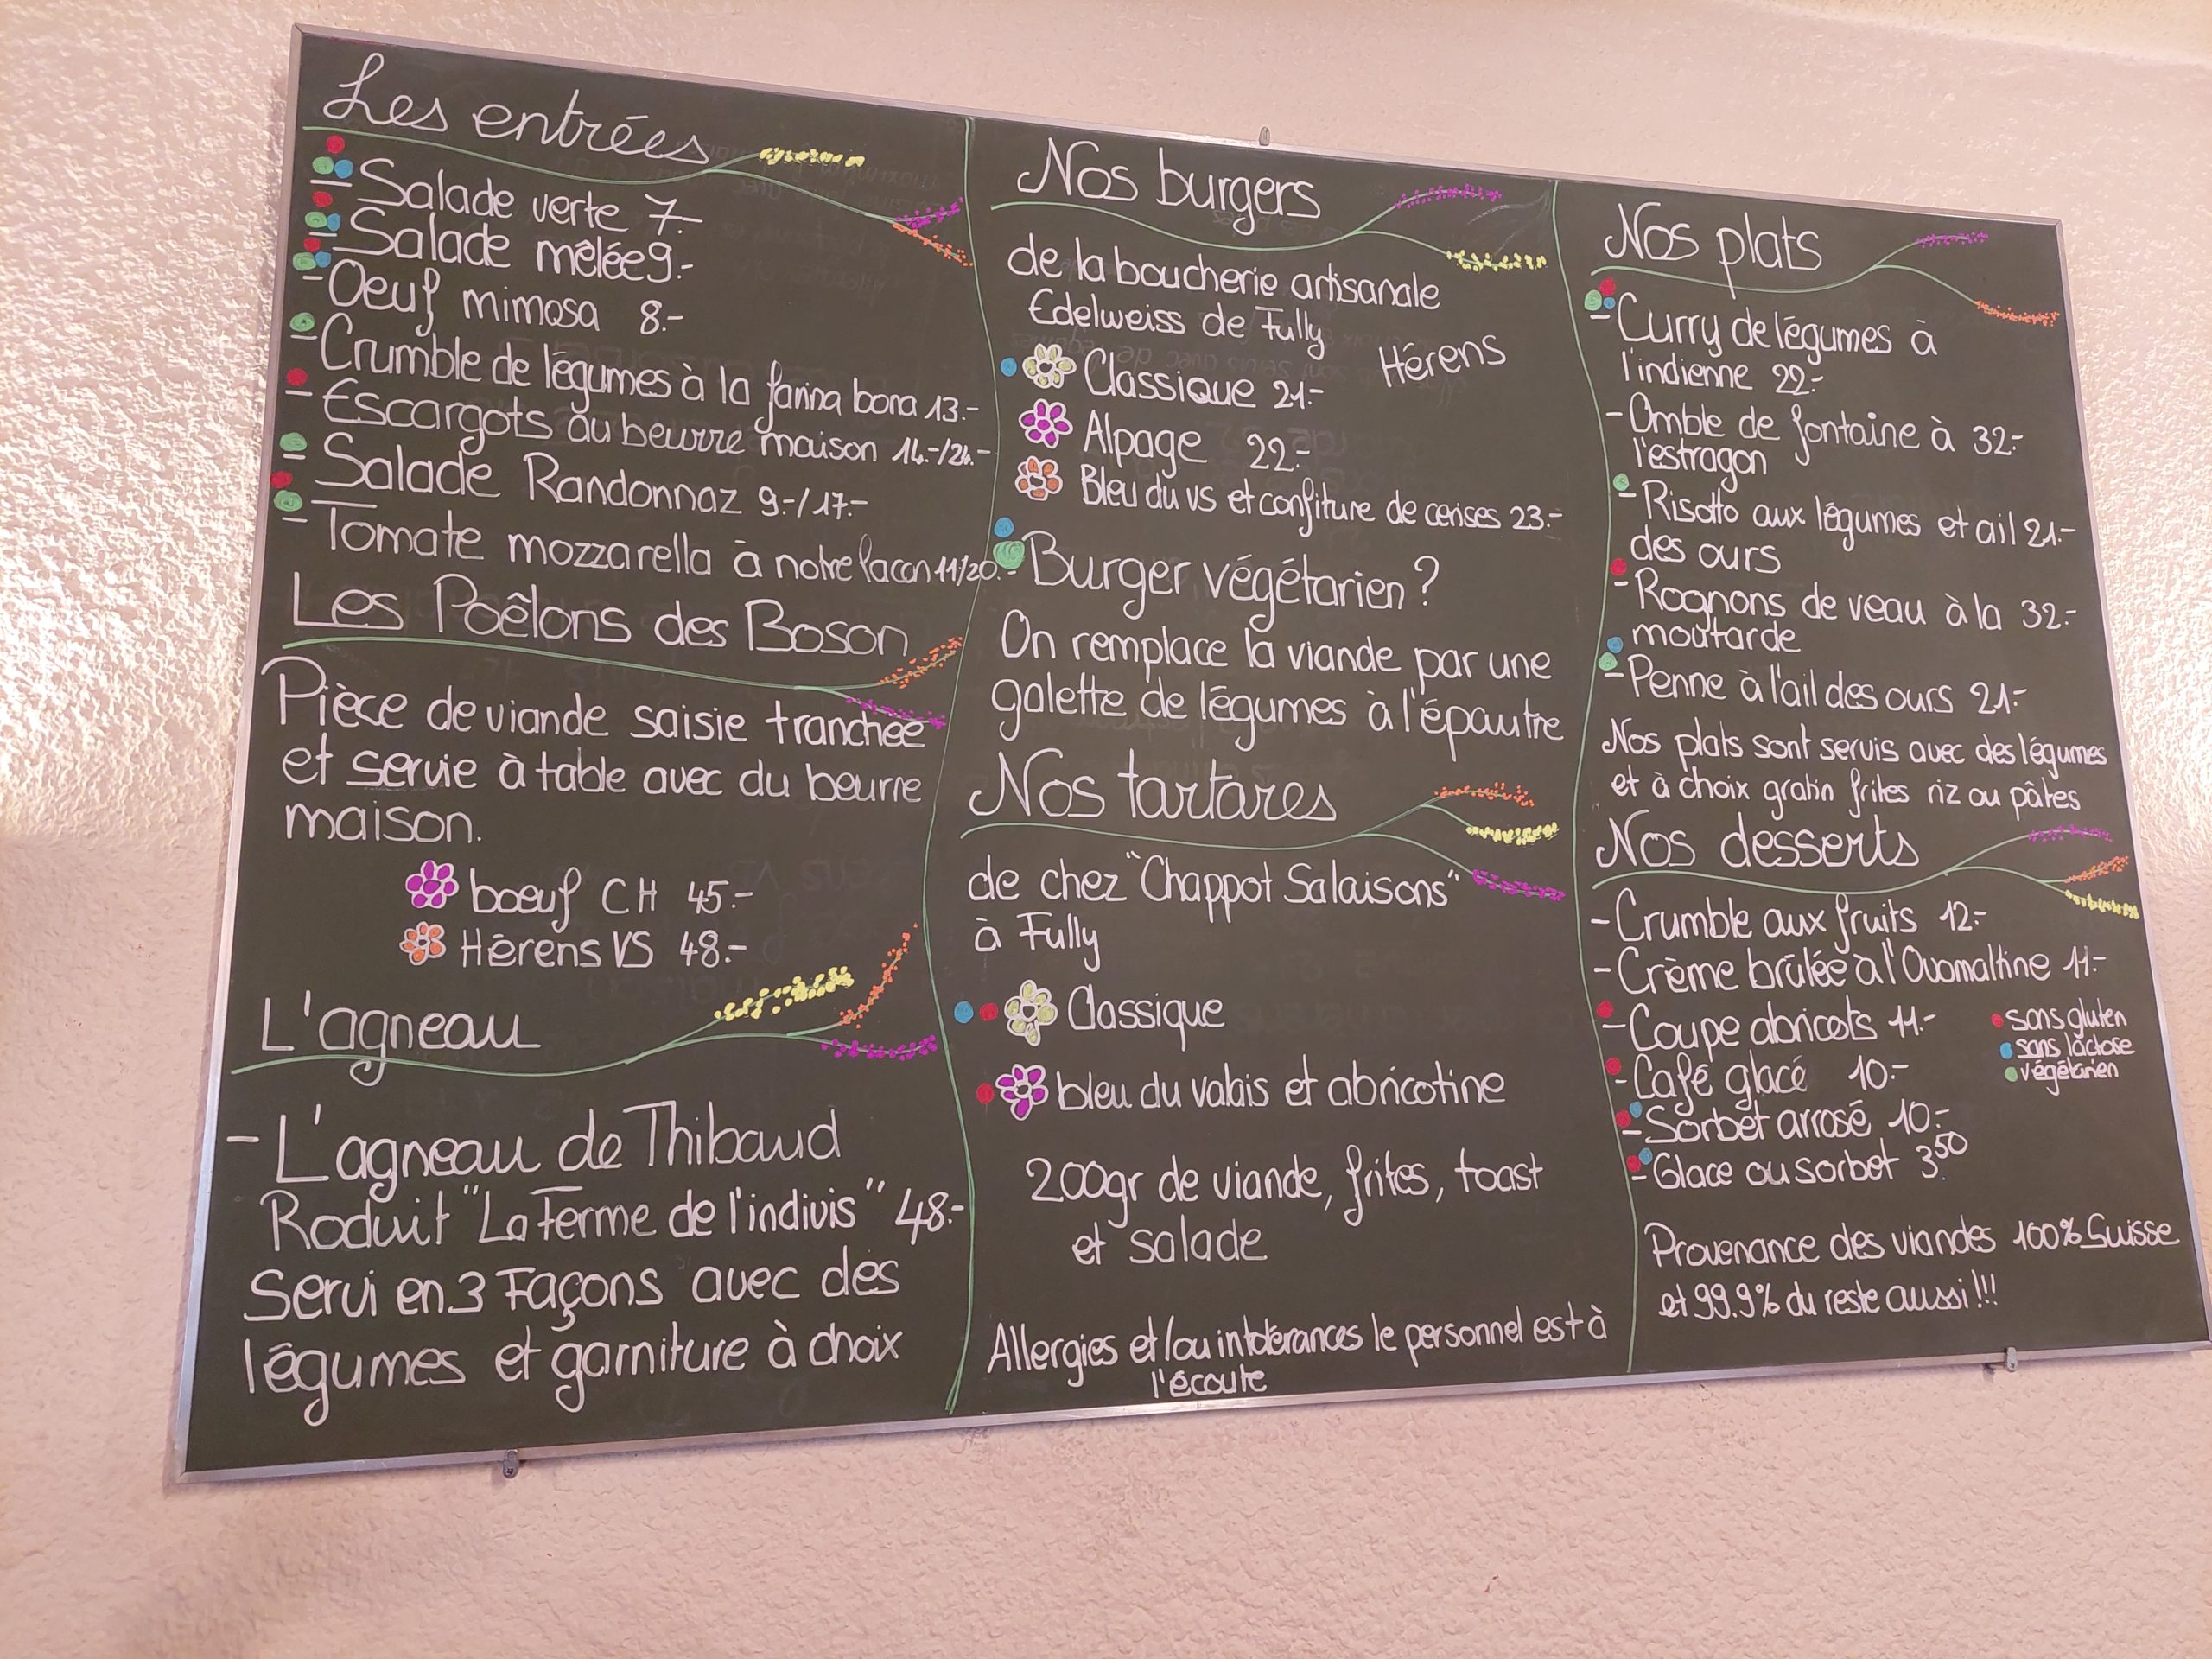 Les entrées
- Salade verte 7.-
- Salade mêlée 9.-
- Oeuf mimosa 8.-
- Crumble de légumes à la farina bona 13.-
- Escargots au beurre maison 14.-/24.-
- Salade Randonnaz 9.-/17.-
- Tomate mozzarella à notre facon 11/20.-
Les Poêlons des Boson
Pièce de viande saisie tranchée
et servie à table avec du beurre
maison.
boeuf CH 45.-
Hérens VS 48.-
L'agneau
- L'agneau de Thibaud
Roduit "La Ferme de l'indivis" 48.-
Servi en 3 Façons avec des
légumes et garniture à choix
Nos burgers
de la boucherie artisanale
Edelweiss de Fully
Hérens
Classique 21.-
Alpage 22.-
Bleu du vs et confiture de cerises 23.-
- Burger végétarien ?
On remplace la viande par une
galette de légumes à l'épautre
Nos tartares
de chez "Chappot Salaisons"
à Fully
Classique
bleu du valais et abricotine
200gr de viande, frites, toast
et salade
Allergies et/ou intolérances le personnel est à
l'écoute
Nos plats
- Curry de légumes à
l'indienne 22.-
- Omble de fontaine à 32.-
l'estragon
- Risotto aux légumes et ail 21.-
des ours
- Rognons de veau à la 32.-
moutarde
- Penne à l'ail des ours 21.-
Nos plats sont servis avec des légumes
et à choix gratin frites riz ou pâtes
Nos desserts
- Crumble aux fruits 12.-
- Crème brûlée à l'Ovomaltine 11.-
- Coupe abricots 11.-
- Café glacé 10.-
- Sorbet arrosé 10.-
- Glace ou sorbet 3.50
sans gluten
sans lactose
végétarien
Provenance des viandes 100% Suisse
et 99.9% du reste aussi !!!